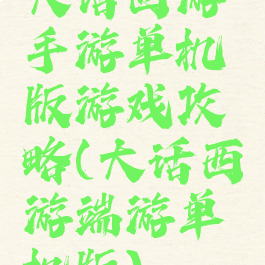 大话西游
手游单机
版游戏攻
略(大话西
游端游单
机版)